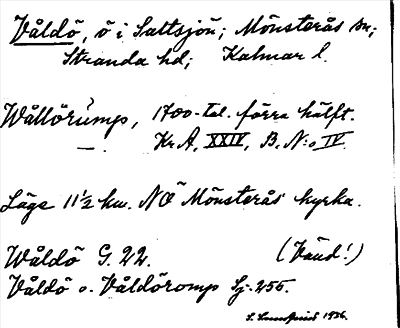 Våldö, ö i Saltsjön; Mönsterås sn;
Stranda hd; Kalmar l.
Wållörump, 1700-tal. förra hälft.
— . Kr. A, XXIV, B. N:o IV.
Läge 11½ km. NO Mönsterås kyrka.
Wåldö G. 22. (Vänd!)
Våldö o. Våldöromp Sj. 255.
S. 1936.